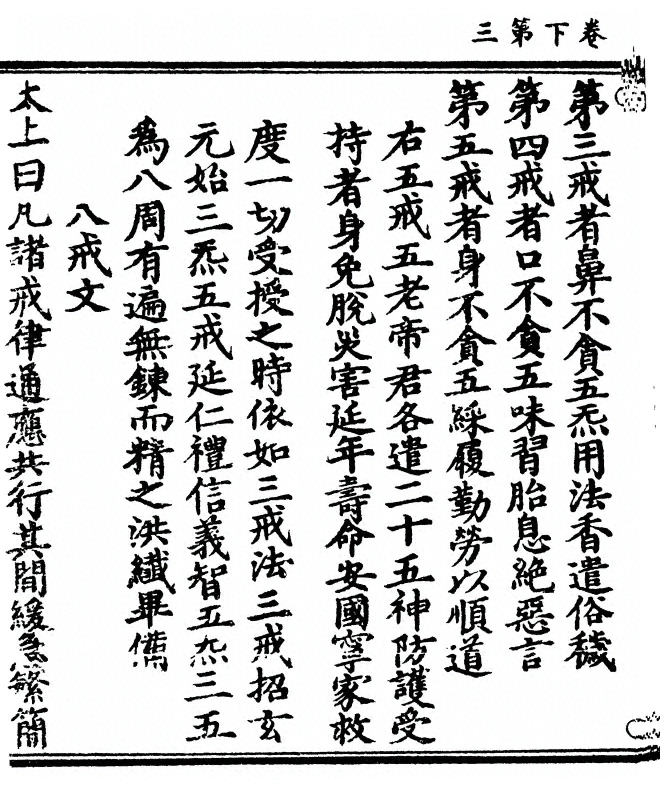 卷下第三
第三戒者鼻不貪五炁用法香遣俗穢
第四戒者口不貪五味習胎息絶惡言
第五戒者身不貪五綵履勤勞以順道
右五戒五老帝君各遣二十五神防護受
持者身免脫災害延年壽命安國寧家救
度一切受授之時依如三戒法三戒招玄
元始三炁五戒延仁禮信義智五炁三五
為八周有遍無鍊而精之洪纎畢備
八戒文
太上曰凡諸戒律通應共行其間緩急繁簡